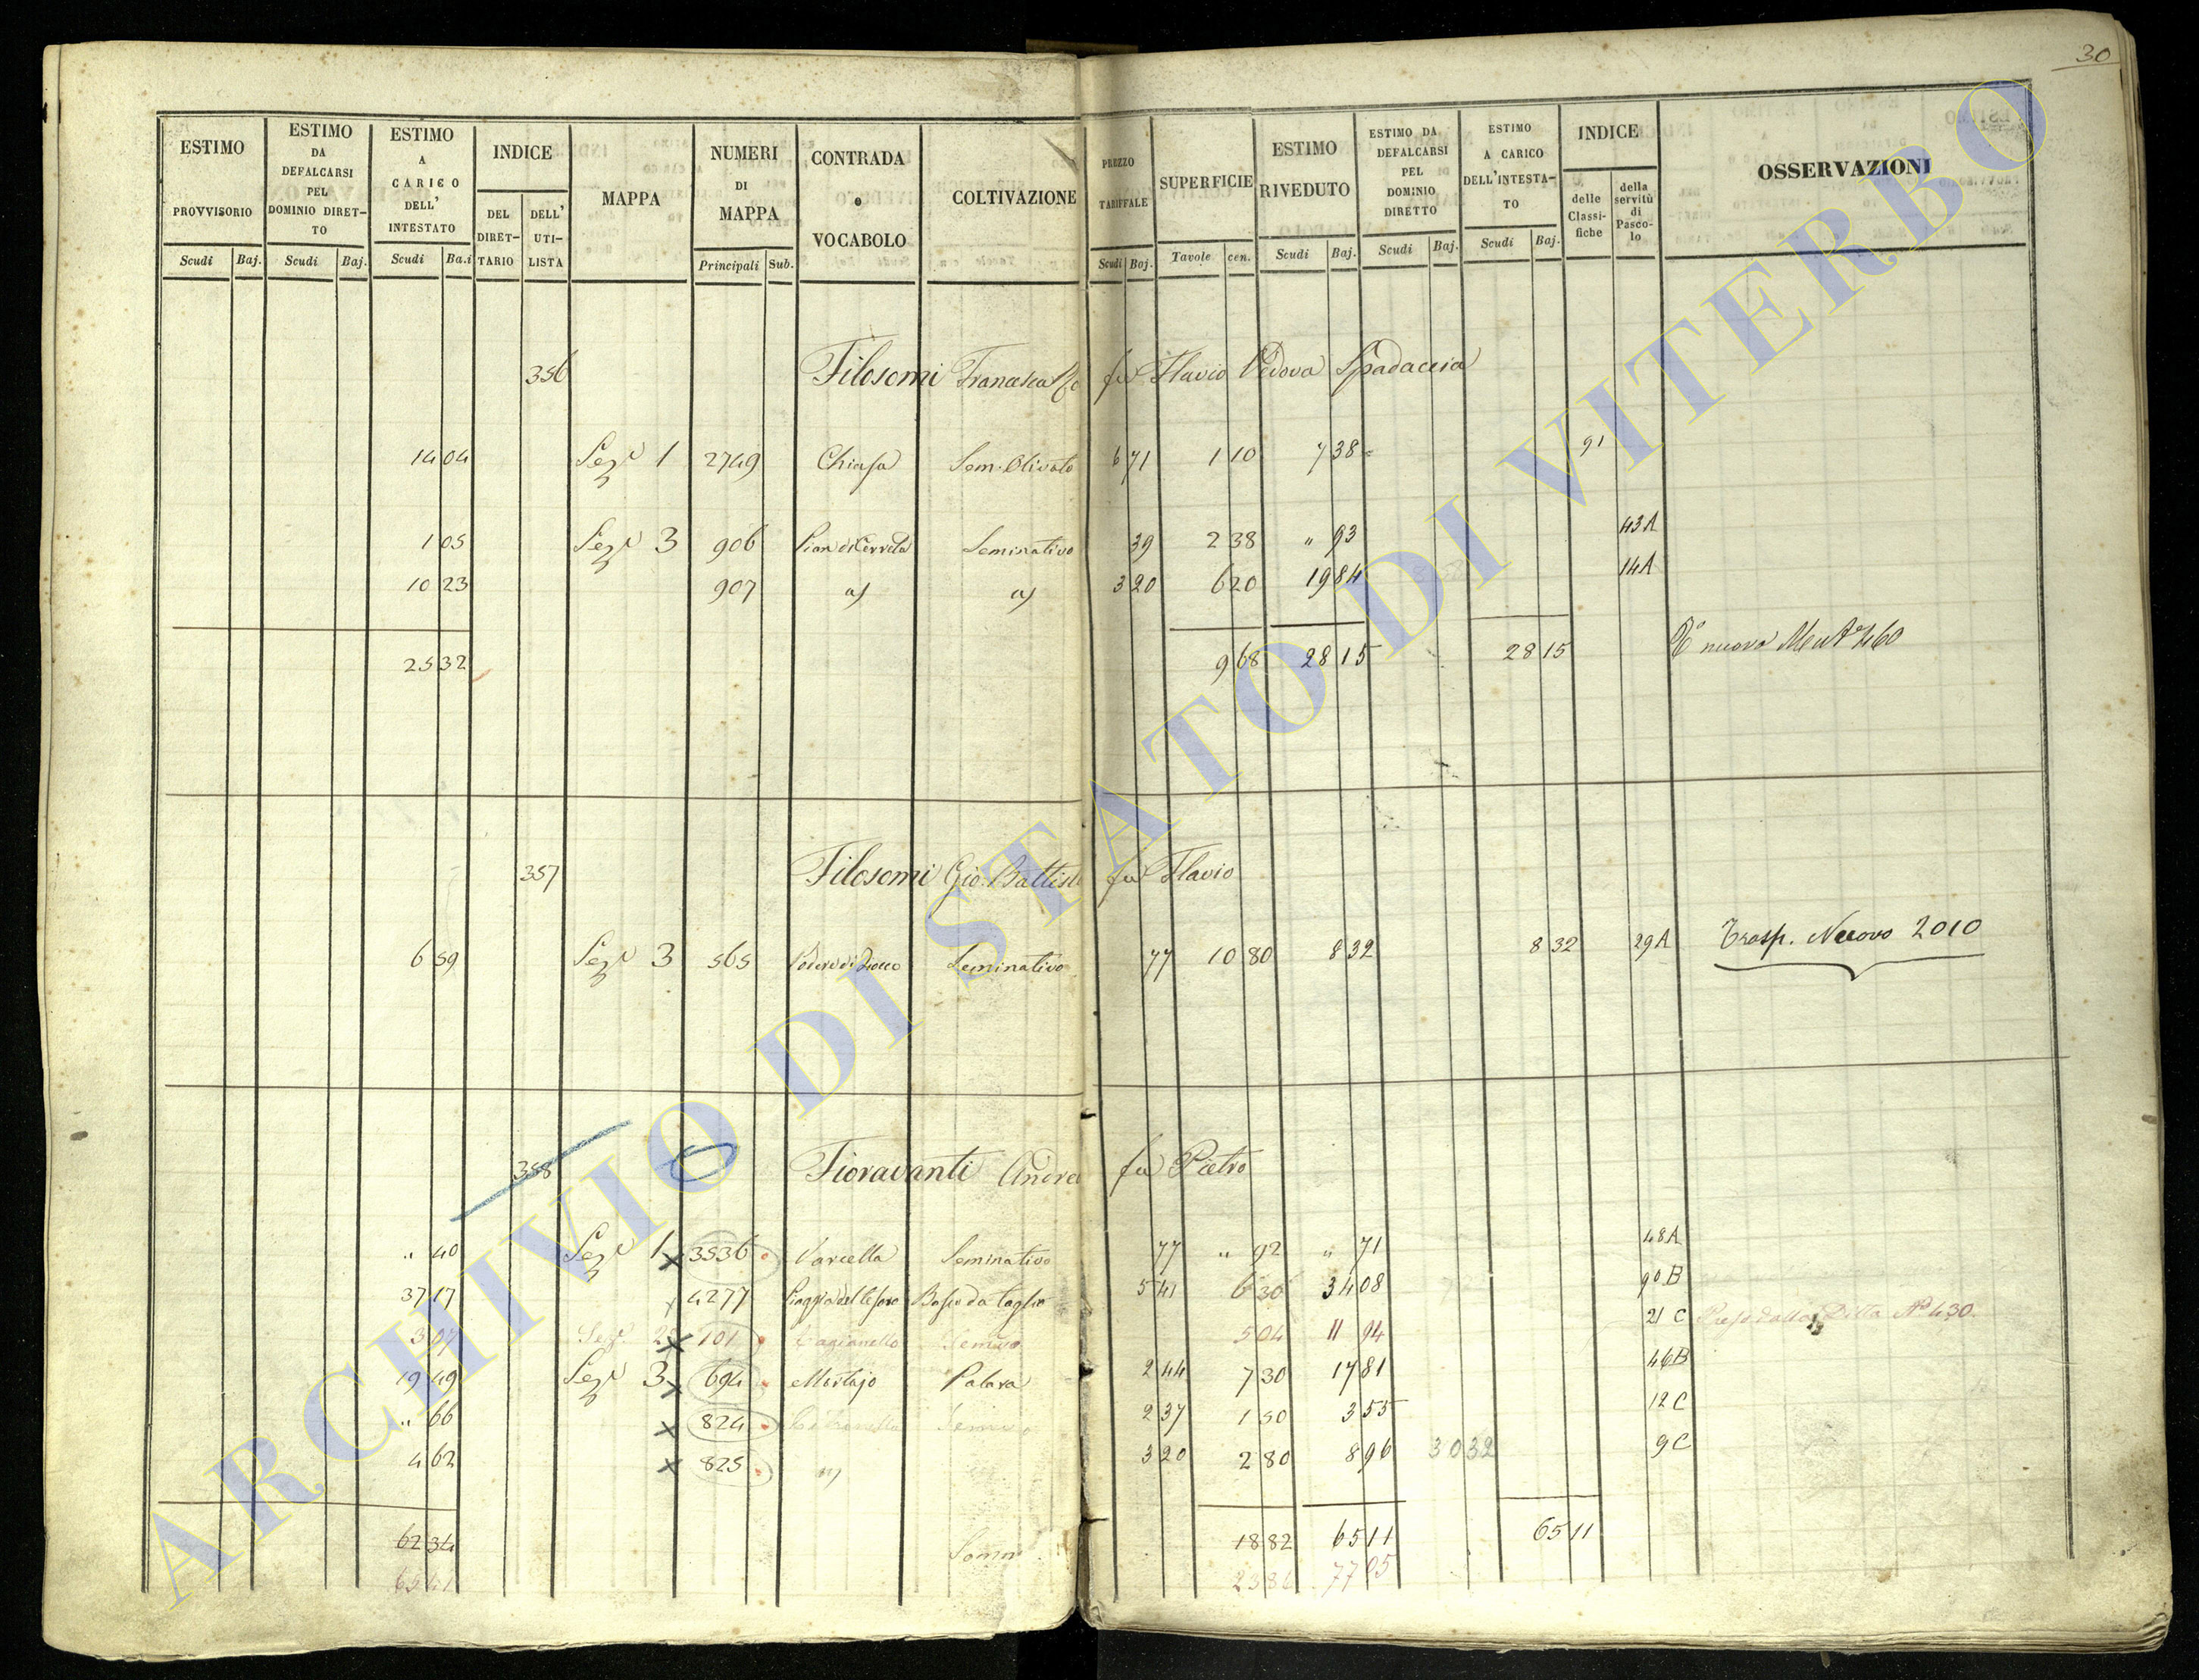 30
ESTIMO PROVVISORIO Scudi Baj.
ESTIMO DA DEFALCARSI PEL DOMINIO DIRET-TO Scudi Baj.
ESTIMO A CARICO DELL' INTESTATO Scudi Ba.i
INDICE DEL DIRET-TARIO DELL' UTI-LISTA
MAPPA
NUMERI DI MAPPA Principali Sub.
CONTRADA o VOCABOLO
COLTIVAZIONE
PREZZO TARIFFALE Scudi Baj.
SUPERFICIE Tavole cen.
ESTIMO RIVEDUTO Scudi Baj.
ESTIMO DA DEFALCARSI PEL DOMINIO DIRETTO Scudi Baj.
ESTIMO A CARICO DELL'INTESTA-TO Scudi Baj.
INDICE delle Classi-fiche della servitù di Pasco-lo
OSSERVAZIONI
356 Filosomi Francesca fu Flavio Vedova Spadaccia
14 04 Sez.e 1 2749 Chiasa Sem. Olivato 6 71 1 10 7 38 91
1 05 Sez.e 3 906 Pian di Cerreto Seminativo 39 2 38 " 93 43A
10 23 907 a) a) 3 20 6 20 19 84 14A
25 32 9 68 28 15 28 15 nuova 460
357 Filosomi Gio. Battista fu Flavio
6 59 Sez.e 3 565 Seminativo 77 10 80 8 32 8 32 29A Trasp. Nuovo 2010
358 Fioravanti Andrea fu Pietro
" 40 Sez.e 1 3536 Varcella Seminativo 77 " 92 " 71 48A
37 17 4277 Bosco da taglio 5 41 6 30 34 08 90B
3 07 Sez. 2 101 Semivo 5 04 11 94 21 C Preso dalla Ditta No 430
19 49 Sez.e 3 694 Mortajo 2 44 7 30 17 81 46B
" 66 824 2 37 1 50 3 55 12 C
4 62 825 3 20 2 80 8 96 30 32 9 C
62 34 Somm 18 82 65 11 65 11
65 41 23 86 77 05
ARCHIVIO DI STATO DI VITERBO